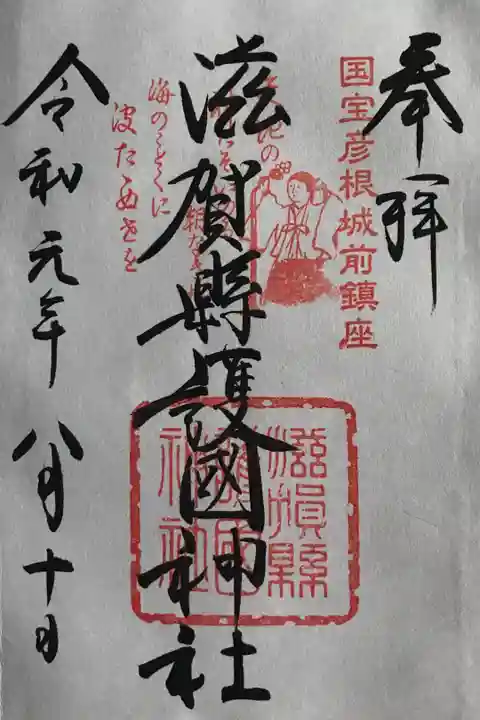 奉拝
国宝彦根城前鎮座
滋賀縣護國神社
海のことくに
波たゝぬ世を
令和元年八月十日
滋賀縣護國神社